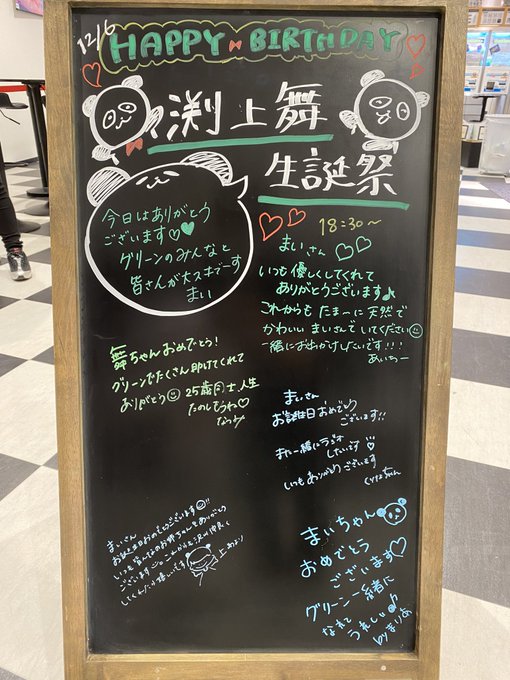 12/6
HAPPY BIRTHDAY
渕上舞
生誕祭
18:30～
今日はありがとう
ございます♡♡
グリーンのみんなと
皆さんが大スキでーす
まい
まいさん
いつも優しくしてくれて
ありがとうございます♪
これからも たまーに天然で
かわいい まいさんで してください☺
一緒にお出かけしたいです!!!
あいりー
舞ちゃんおめでとう!
グリーンでたくさん助けてくれて
ありがとう☺ 25歳 人生
たのしもうね♡
なつみ
まいさん
お誕生日おめでとう
ございます!!
また一緒にラジオ
したいです♡
いつもありがとうございます
まいさん
お誕生日おめでとうございます☺
いつも
ございます
まいちゃん
おめでとう
ございます♡
グリーン一緒に
なれて
うれしい♪
by まりあ